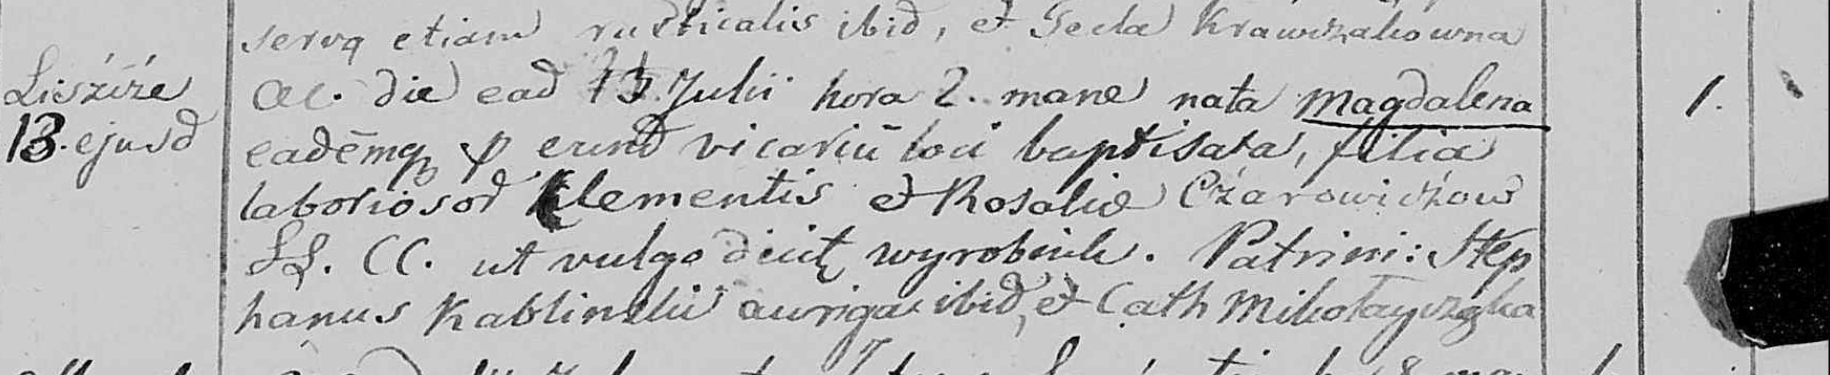 servq etiam rusticalis ibid, et Tecla Krawczakowna
Liszcze
Ac. die ead 13 Julii hora 2. mane nata Magdalena 1.
13. ejusd
eadēmq p eund vicariū loci baptisata, filia
laboriosor Klementis et Rosaliæ Czarowiczow
LL. CC. ut vulgo dicit wyrobnik. Patrini: Step
hanus Kablinski auriga ibid, et Cath Mikołayczka